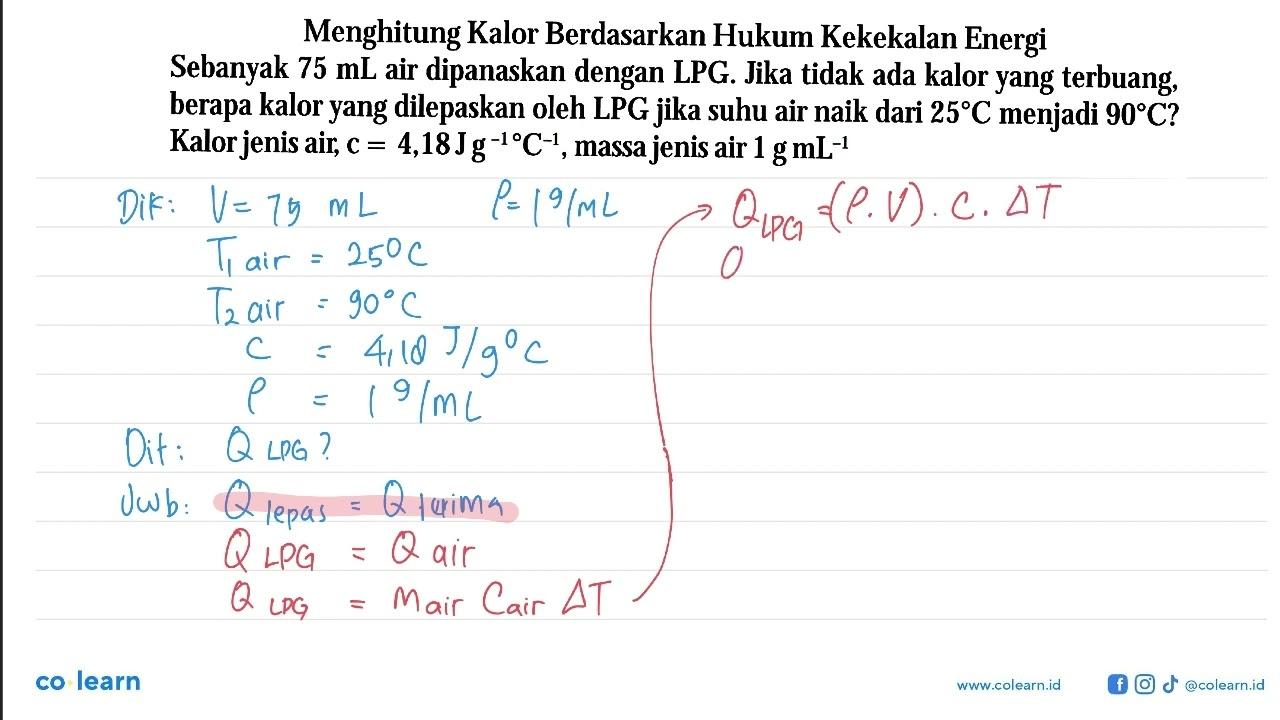 Menghitung Kalor Berdasarkan Hukum Kekekalan Energi
Sebanyak 75 mL air dipanaskan dengan LPG. Jika tidak ada kalor yang terbuang,
berapa kalor yang dilepaskan oleh LPG jika suhu air naik dari 25°C menjadi 90°C?
Kalor jenis air, c = 4,18 J g⁻¹°C⁻¹, massa jenis air 1 g mL⁻¹
Dik: V = 75 mL ρ = 1 g/mL
T₁ air = 25°C
T₂ air = 90°C
c = 4,18 J/g°C
ρ = 1 g/mL
Dit: Q LPG?
Jwb: Q lepas = Q terima
Q LPG = Q air
Q LPG = Mair Cair ΔT
Q LPG = (ρ.V). C. ΔT
Q
co learn
www.colearn.id
@colearn.id